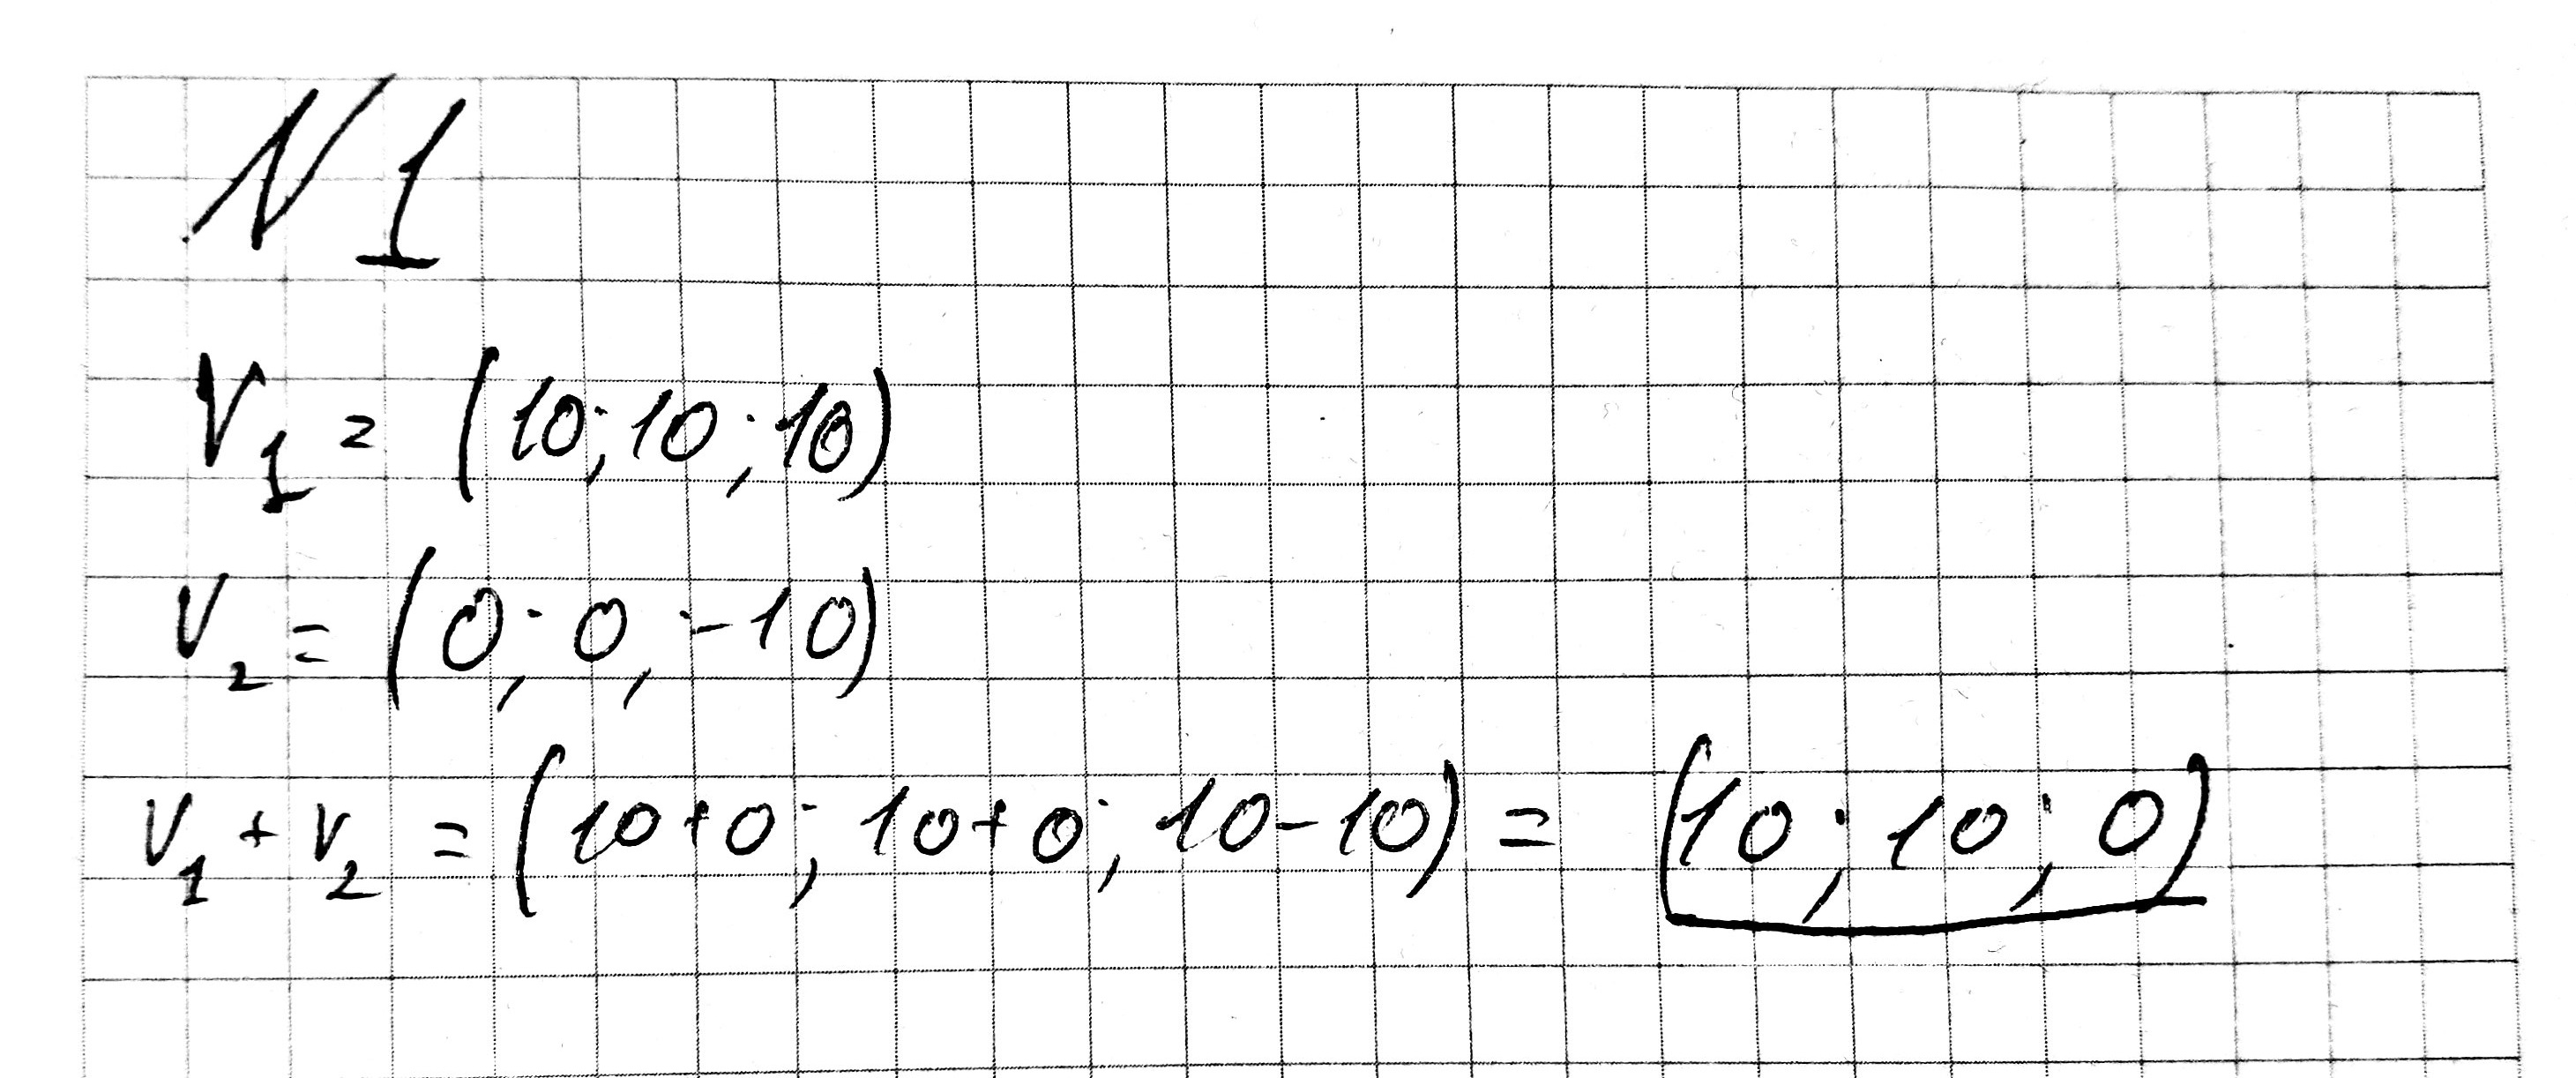 N1
V₁ = (10; 10; 10)
V₂ = (0; 0; -10)
V₁ + V₂ = (10+0; 10+0; 10-10) = (10; 10; 0)